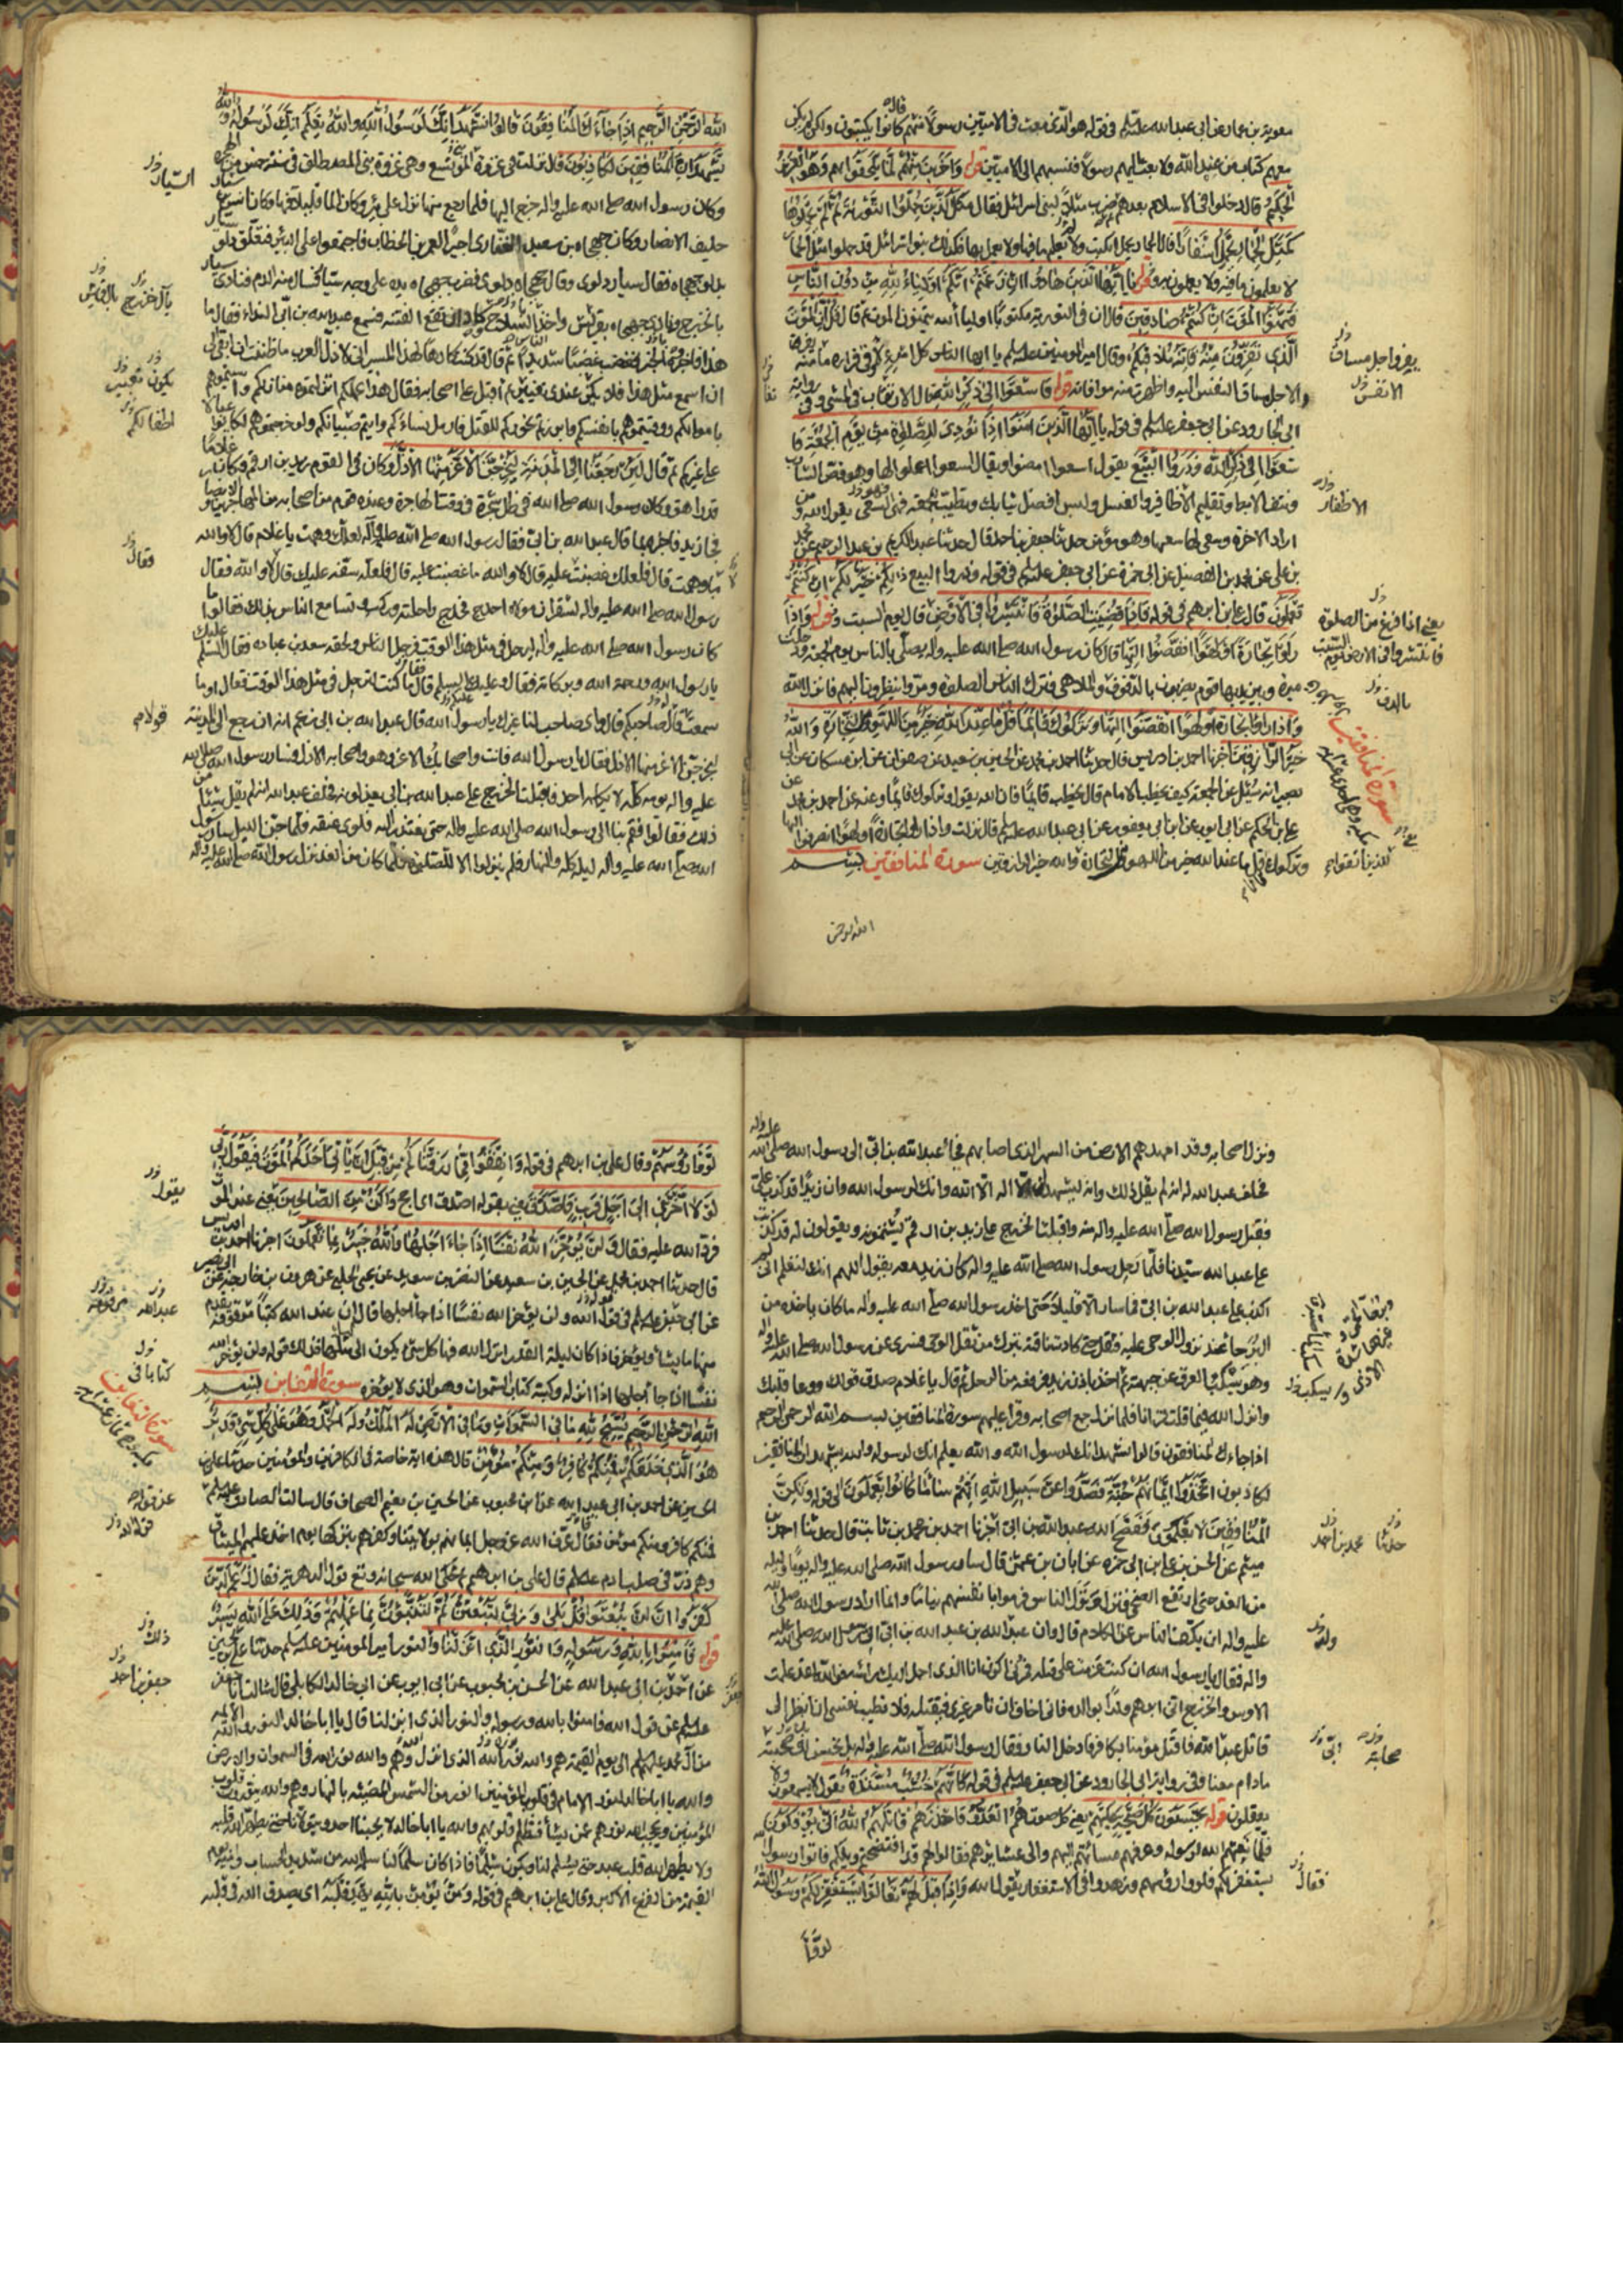 معوية بن عمار عن ابى عبد الله عليه السلم فى قوله هو الذى بعث فى الاميين رسولا منهم قال كانوا يكتبون ولكن لم يكن
معهم كتاب من عند الله ولا بعث اليهم رسولا فنسبهم الى الاميين قوله وَآخَرِينَ مِنْهُمْ لَمَّا يَلْحَقُوا بِهِمْ وَهُوَ الْعَزِيزُ
الْحَكِيمُ قال دخلوا فى الاسلام بعدهم ثم ضرب مثلا لبنى اسرائيل فقال مَثَلُ الَّذِينَ حُمِّلُوا التَّوْرَاةَ ثُمَّ لَمْ يَحْمِلُوهَا
كَمَثَلِ الْحِمَارِ يَحْمِلُ أَسْفَارًا قال الحمار يحمل الكتب ولا يعلم ما فيها ولا يعمل بها فكذلك بنو اسرائيل قد حملوا مثل الحمار
لا يعلمون ما فيه ولا يعملون به وقوله يَا أَيُّهَا الَّذِينَ هَادُوا إِنْ زَعَمْتُمْ أَنَّكُمْ أَوْلِيَاءُ لِلَّهِ مِنْ دُونِ النَّاسِ
فَتَمَنَّوُا الْمَوْتَ إِنْ كُنْتُمْ صَادِقِينَ قال ان فى التورية مكتوبا اولياء الله يتمنون الموت ثم قال قُلْ إِنَّ الْمَوْتَ
الَّذِي تَفِرُّونَ مِنْهُ فَإِنَّهُ مُلَاقِيكُمْ وقال امير المومنين عليه السلم يا ايها الناس كل امرئ لاق فى فراره ما منه يفر
والاجل مساق النفس اليه والهرب منه موافاته قوله فَاسْعَوْا إِلَى ذِكْرِ اللَّهِ قال الاسعاب فى المشى وفى رواية
ابى الجارود عن ابى جعفر عليه السلم فى قوله يَا أَيُّهَا الَّذِينَ آمَنُوا إِذَا نُودِيَ لِلصَّلَوةِ مِنْ يَوْمِ الْجُمُعَةِ فَا
سْعَوْا إِلَى ذِكْرِ اللَّهِ وَذَرُوا الْبَيْعَ يقول اسعوا امضوا ويقال اسعوا اعملوا لها وهو قص الشارب
ونتف الابط وتقليم الاظافير والغسل ولبس افضل ثيابك وتطيب للجمعة فهو السعى يقول الله ومن
اراد الاخرة وسعى لها سعيها وهو مؤمن حدثنا جعفر بن احمد قال حدثنا عبد الكريم بن عبد الرحيم عن محمد
بن على عن محمد بن الفضيل عن ابى حمزة عن ابى جعفر عليه السلم فى قوله وذروا البيع ذَلِكُمْ خَيْرٌ لَكُمْ إِنْ كُنْتُمْ
تَعْلَمُونَ قال على بن ابرهيم فى قوله فَإِذَا قُضِيَتِ الصَّلَوةُ فَانْتَشِرُوا فِي الْأَرْضِ قال يوم السبت وقوله وَإِذَا
رَأَوْا تِجَارَةً أَوْ لَهْوًا انْفَضُّوا إِلَيْهَا قال كان رسول الله صلى الله عليه واله يصلى بالناس يوم الجمعة ودخلت
ميرة وبين يديها قوم يضربون بالدفوف والملاهى فترك الناس الصلوة ومروا ينظرون اليهم فانزل الله
وَإِذَا رَأَوْا تِجَارَةً أَوْ لَهْوًا انْفَضُّوا إِلَيْهَا وَتَرَكُوكَ قَائِمًا قُلْ مَا عِنْدَ اللَّهِ خَيْرٌ مِنَ اللَّهْوِ وَمِنَ التِّجَارَةِ وَاللَّهُ
خَيْرُ الرَّازِقِينَ اخبرنا احمد بن ادريس قال حدثنا احمد بن محمد عن الحسين بن سعيد عن صفوان عن ابن مسكان عن ابى
بصير انه سئل عن الجمعة كيف يخطب الامام قال يخطب قائما فان الله يقول وتركوك قائما وعنه عن احمد بن محمد عن
على بن الحكم عن ابى ايوب عن ابن ابى يعفور عن ابى عبد الله عليه السلم قال نزلت واذا راوا تجارة او لهوا انصرفوا اليها
وتركوك قائما قل ما عند الله خير من اللهو ومن التجارة والله خير الرازقين سورة المنافقين بسم
الله الرحمن
يفر والاجل مساق
الانفس
الاظفار
يعنى اذا فرغ من الصلوة
فانتشروا فى الارض يوم السبت
بالدف
سورة المنافقين
للذين اتقوا
اللهِ الرَّحْمَنِ الرَّحِيمِ إِذَا جَاءَكَ الْمُنَافِقُونَ قَالُوا نَشْهَدُ إِنَّكَ لَرَسُولُ اللَّهِ وَاللَّهُ يَعْلَمُ إِنَّكَ لَرَسُولُهُ وَاللَّهُ
يَشْهَدُ إِنَّ الْمُنَافِقِينَ لَكَاذِبُونَ قال نزلت فى غزوة المريسيع وهى غزوة بنى المصطلق فى سنة خمس من الهجرة
وكان رسول الله صلى الله عليه واله خرج اليها فلما رجع منها نزل على بئر وكان الماء قليلا فيها وكان انس بن سيار
حليف الانصار وكان جهجاه بن سعيد الغفارى اجيرا لعمر بن الخطاب فاجتمعوا على البئر فتعلق دلو سيار
بدلو جهجاه فقال سيار دلوى وقال جهجاه دلوى فضرب جهجاه يده على وجه سيار فسال منه الدم فنادى سيار
بالخزرج ونادى جهجاه بقريش واخذ الناس السلاح وكاد ان تقع الفتنة فسمع عبد الله بن ابى النداء فقال ما
هذا فاخبروه بالخبر فغضب غضبا شديدا ثم قال قد كنت كارها لهذا المسير انى لاذل العرب ما ظننت انى ابقى الى
ان اسمع مثل هذا فلا يكن عندى تغيير ثم اقبل على اصحابه فقال هذا عملكم انزلتموهم منازلكم وآسيتموهم
باموالكم ووقيتموهم بانفسكم وابرزتم نحوركم للقتل فارمل نساءكم وايتم صبيانكم ولو اخرجتموهم لكانوا عيالا
على غيركم ثم قال لَئِنْ رَجَعْنَا إِلَى الْمَدِينَةِ لَيُخْرِجَنَّ الْأَعَزُّ مِنْهَا الْأَذَلَّ وكان فى القوم زيد بن ارقم وكان غلاما
قد راهق وكان رسول الله صلى الله عليه فى ظل شجرة فى وقت الهاجرة وعنده قوم من اصحابه من المهاجرين والانصار
فجاء زيد فاخبره بما قال عبد الله بن ابى فقال رسول الله صلى الله عليه واله لعلك وهمت يا غلام قال لا والله
ما وهمت قال فلعلك غضبت عليه قال لا والله ما غضبت عليه قال فلعله سفه عليك قال لا والله فقال
رسول الله صلى الله عليه واله لشقران مولاه احدج فاحدج راحلته وركب وتسامع الناس بذلك فقالوا ما
كان رسول الله صلى الله عليه واله ليرحل فى مثل هذا الوقت فرحل الناس ولحقه سعد بن عبادة فقال السلم عليك
يا رسول الله ورحمة الله وبركاته فقال وعليك السلم قال ما كنت لترحل فى مثل هذا الوقت فقال اوما
سمعت قول صاحبكم قال واى صاحب لنا غيرك يا رسول الله قال عبد الله بن ابى زعم انه ان رجع الى المدينة
ليخرجن الاعز منها الاذل فقال يا رسول الله فانت واصحابك الاعز وهو واصحابه الاذل فسار رسول الله صلى الله
عليه واله يومه كله لا يكلمه احد فاقبلت الخزرج على عبد الله بن ابى يعذلونه فحلف عبد الله انه لم يقل شيئا من
ذلك فقالوا فقم بنا الى رسول الله صلى الله عليه واله حتى يعتذر اليه فلوى عنقه فلما جن الليل سار رسول
الله صلى الله عليه واله ليله كله والنهار فلم ينزلوا الا للصلوة فلما كان من الغد نزل رسول الله صلى الله عليه واله
السيار
يال خزرج يال قريش
يكون
اطفالكم
فقال
قولام
ونزل اصحابه وقد امهدهم الارض من السهر الذى اصابهم فجاء عبد الله بن ابى الى رسول الله صلى الله عليه واله
فحلف عبد الله له انه لم يقل ذلك وانه ليشهد ان لا اله الا الله وانك لرسول الله وان زيدا قد كذب على
فقبل رسول الله صلى الله عليه واله منه واقبلت الخزرج على زيد بن ارقم يشتمونه ويقولون له قد كذبت
على عبد الله سيدنا فلما رحل رسول الله صلى الله عليه واله كان زيد معه يقول اللهم انك لتعلم انى لم
اكذب على عبد الله بن ابى فما سار الا قليلا حتى اخذ رسول الله صلى الله عليه واله ما كان ياخذه من
البرحاء عند نزول الوحى عليه فثقل حتى كادت ناقته تبرك من ثقل الوحى فسرى عن رسول الله صلى الله عليه واله
وهو يسكب العرق عن جبهته ثم اخذ باذن زيد فرفعه من الرحل ثم قال يا غلام صدق قولك ووعا قلبك
وانزل الله فيما قلت قرانا فلما نزل جمع اصحابه وقرا عليهم سورة المنافقين بسم الله الرحمن الرحيم
اذا جاءك المنافقون قالوا نشهد انك لرسول الله والله يعلم انك لرسوله والله يشهد ان المنافقين
لكاذبون اتَّخَذُوا أَيْمَانَهُمْ جُنَّةً فَصَدُّوا عَنْ سَبِيلِ اللَّهِ إِنَّهُمْ سَاءَ مَا كَانُوا يَعْمَلُونَ الى قوله وَلَكِنَّ
الْمُنَافِقِينَ لَا يَعْلَمُونَ ففضح الله عبد الله بن ابى اخبرنا احمد بن محمد بن ثابت قال حدثنا احمد بن
ميثم عن الحسن بن على بن ابى حمزه عن ابان بن عثمن قال سار رسول الله صلى الله عليه واله يوما وليلة
من الغد حتى ارتفع الضحى فنزل ونزل الناس فرموا بانفسهم نياما وانما اراد رسول الله صلى الله
عليه واله ان يكف الناس عن الكلام قال وان عبد الله بن عبد الله بن ابى اتى رسول الله صلى الله عليه
واله فقال يا رسول الله ان كنت عزمت على قتله فمرنى اكون انا الذى احمل اليك راسه فوالله لقد علمت
الاوس والخزرج انى ابرهم ولدا بوالد فانى اخاف ان تامر غيرى فيقتله فلا تطيب نفسى ان انظر الى
قاتل عبد الله فاقتل مؤمنا بكافر فادخل النار فقال رسول الله صلى الله عليه واله بل نحسن لك صحبته
مادام معنا وفى رواية ابى الجارود عن ابى جعفر عليه السلم فى قوله كَأَنَّهُمْ خُشُبٌ مُسَنَّدَةٌ يقول لا يسمعون ولا
يعقلون قوله يَحْسَبُونَ كُلَّ صَيْحَةٍ عَلَيْهِمْ يعنى كل صوت هُمُ الْعَدُوُّ فَاحْذَرْهُمْ قَاتَلَهُمُ اللَّهُ أَنَّى يُؤْفَكُونَ
فلما نعتهم الله لرسوله وعرفهم مسائتهم اليهم والى عشايرهم فقالوا لهم قد افتضحتم ويلكم فاتوا رسول الله
يستغفر لكم فلووا رؤسهم وزهدوا فى الاستغفار يقول الله وَإِذَا قِيلَ لَهُمْ تَعَالَوْا يَسْتَغْفِرْ لَكُمْ رَسُولُ اللَّهِ
لووا
حدثنا محمد بن احمد
ولده
صحابته ابى
فقال
لَوَّوْا رُءُوسَهُمْ وقال على بن ابرهيم فى قوله وَأَنْفِقُوا مِمَّا رَزَقْنَاكُمْ مِنْ قَبْلِ أَنْ يَأْتِيَ أَحَدَكُمُ الْمَوْتُ فَيَقُولَ رَبِّ
لَوْلَا أَخَّرْتَنِي إِلَى أَجَلٍ قَرِيبٍ فَأَصَّدَّقَ يعنى بقوله اصدق اى احج وَأَكُنْ مِنَ الصَّالِحِينَ يعنى عند الموت
فرد الله عليه فقال وَلَنْ يُؤَخِّرَ اللَّهُ نَفْسًا إِذَا جَاءَ أَجَلُهَا وَاللَّهُ خَبِيرٌ بِمَا تَعْمَلُونَ اخبرنا احمد بن ادريس
قال حدثنا احمد بن محمد عن الحسين بن سعيد عن النضر بن سويد عن يحيى الحلبى عن هرون بن خارجة عن ابى بصير
عن ابى جعفر عليه السلم فى قول الله ولن يؤخر الله نفسا اذا جاء اجلها قال ان عند الله كتبا موقوفة يقدم
منها ما يشاء ويؤخر فاذا كان ليلة القدر انزل الله فيها كل شئ يكون الى مثلها فذلك قوله ولن يؤخر الله
نفسا اذا جاء اجلها اذا انزله وكتبه كتاب السموات وهو الذى لا يؤخره سورة التغابن بسم
اللهِ الرَّحْمَنِ الرَّحِيمِ يُسَبِّحُ لِلَّهِ مَا فِي السَّمَوَاتِ وَمَا فِي الْأَرْضِ لَهُ الْمُلْكُ وَلَهُ الْحَمْدُ وَهُوَ عَلَى كُلِّ شَيْءٍ قَدِيرٌ
هُوَ الَّذِي خَلَقَكُمْ فَمِنْكُمْ كَافِرٌ وَمِنْكُمْ مُؤْمِنٌ قال هذه الاية خاصة فى الكافرين والمؤمنين حدثنا على بن
الحسين عن احمد بن ابى عبد الله عن ابن محبوب عن الحسين بن نعيم الصحاف قال سالت الصادق عليه السلم
فمنكم كافر ومنكم مؤمن فقال عرف الله عز وجل ايمانهم بولايتنا وكفرهم بتركها يوم اخذ عليهم الميثاق
وهم ذر فى صلب ادم عليه السلم قال على بن ابرهيم ثم حكى الله سبحانه قول الدهرية فقال زَعَمَ الَّذِينَ
كَفَرُوا أَنْ لَنْ يُبْعَثُوا قُلْ بَلَى وَرَبِّي لَتُبْعَثُنَّ ثُمَّ لَتُنَبَّؤُنَّ بِمَا عَمِلْتُمْ وَذَلِكَ عَلَى اللَّهِ يَسِيرٌ
قوله فَآمِنُوا بِاللَّهِ وَرَسُولِهِ وَالنُّورِ الَّذِي أَنْزَلْنَا والنور امير المومنين عليه السلم حدثنا على بن الحسين
عن احمد بن ابى عبد الله عن الحسن بن محبوب عن ابى ايوب عن ابى خالد الكابلى قال سالت ابا جعفر
عليه السلم عن قول الله فامنوا بالله ورسوله والنور الذى انزلنا قال يا ابا خالد النور والله الائمة
من آل محمد عليهم السلم الى يوم القيمة هم والله نور الله الذى انزل وهم والله نور الله فى السموات والارض
والله يا ابا خالد لنور الامام فى قلوب المؤمنين انور من الشمس المضيئة بالنهار وهم والله ينورون قلوب
المؤمنين ويحجب الله نورهم عن يشاء فتظلم قلوبهم والله يا ابا خالد لا يحبنا احد ويتولانا حتى يطهر الله قلبه
ولا يطهر الله قلب عبد حتى يسلم لنا ويكون سلما فاذا كان سلما لنا سلمه الله من شديد الحساب وآمنه يوم
القيمة من الفزع الاكبر وقال على بن ابرهيم فى قوله وَمَنْ يُؤْمِنْ بِاللَّهِ يَهْدِ قَلْبَهُ اى يصدق الله فى قلبه
يقول
عبد الله
كتابا فى
سورة التغابن
عن قوله
ذلك
جعفر بن احمد